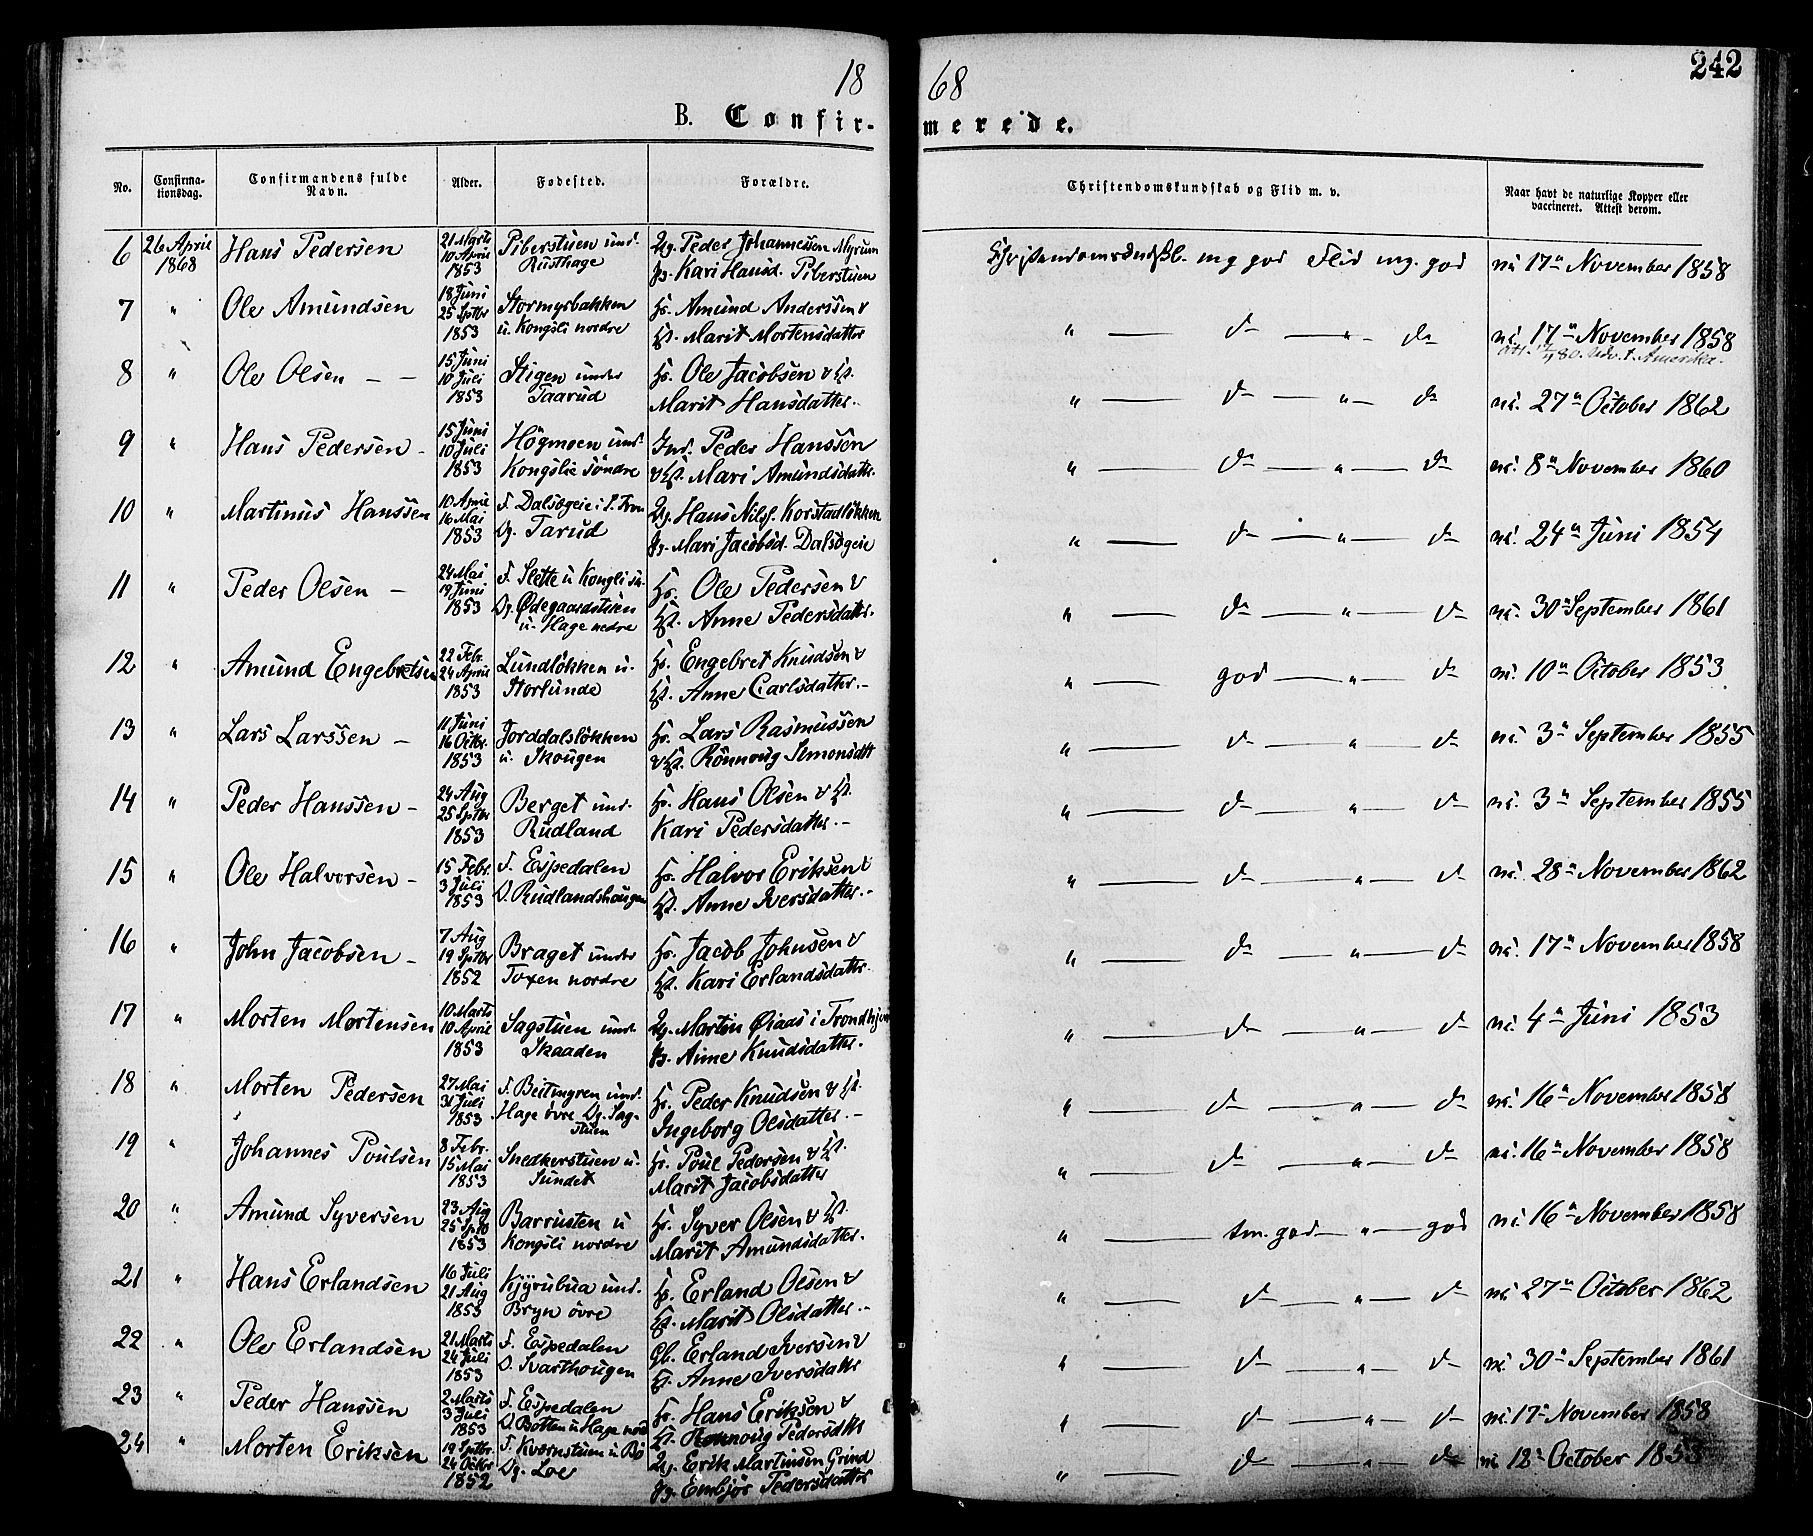 18 68
242
B. Confir- merede.
No. Confirma-tionsdag. Confirmandens fulde Navn. Alder. Fødested. Forældre. Christendomskundskab og Flid m. v. Naar havt de naturlige Kopper eller vaccineret. Attest derom.
6 26 April 1868 Hans Pedersen 21 Marts 10 April 1853 Piberstuen und. Rusthage Ug. Peder Johannesen Myrum Pg. Kari Hansd. Piberstuen Christendomskndskb. mg god Flid mg. god 17" November 1858
7 " Ole Amundsen 18 Juni 25 Sptbr 1853 Stormyrbakken u. Kongsli nordre Hs. Amund Anderssen & Marit Mortensdatter " d — " — d 17" November 1858
8 " Ole Olsen — — 15 Juni 10 Juli 1853 Stigen under Taarud Hs. Ole Jacobsen & Marit Hansdatter. " d — " — d 27" October 1862
9 " Hans Pedersen - 15 Juni 10 Juli 1853 Högmoen und. Kongslie söndre Ind. Peder Hanssen & Mari Amundsdatter. " d — " — d 8" November 1860
10 " Martinus Hanssen 10 April 16 Mai 1853 F. Dalsøgeie i S. Fron Dg. Tarud Ug. Hans Nilss. Korstadløkken Mari Jacobsd. Dalsøgeie " d — " — d 24" Juni 1854
11 " Peder Olsen — 24 Mai 19 Juni 1853 F. Slette u Kongli sn. Dg. Ødegaardstuen u. Hage nedre Hs. Ole Pedersen & Anne Pedersdatter. " d — " — d 30" September 1861
12 " Amund Engebretsen 22 Febr. 24 April 1853 Lundløkken u. Storlunde Hs. Engebret Knudsen & Anne Carlsdatter. " god — " — d 10" October 1853
13 " Lars Larssen — 11 Juni 16 Octbr. 1853 Jorddalsløkken u. Skougen Hs. Lars Rasmussen & Rönnoug Simonsdtr " d — " — d 3" September 1855
14 " Peder Hanssen - 24 Aug 25 Sptbr 1853 Berget und. Rudland Hs. Hans Olsen & Kari Pedersdatter. " d — " — d 3" September 1855
15 " Ole Halvorsen - 15 Febr. 3 Juli 1853 F. Espedalen D. Rudlandshaugen Hs. Halvor Eriksen & Anne Iversdatter. " d — " — d 28" November 1862
16 " John Jacobsen - 7 Aug 19 Sptbr 1852 Braget under Toxen nordre Hs. Jacob Johnsen & Kari Erlandsdatter. " d — " — d 17" November 1858
17 " Morten Mortensen 10 Marts 10 April 1853 Sagstuen und. Skaaden Ug. Martin Øiaas i Trondhjem Knudsdatter. " d — " — d 4" Juni 1853
18 " Morten Pedersen 27 Mai 31 Juli 1853 F. Beitmyren und. Hage övre Dg. Sagstuen Hs. Peder Knudsen & Ingeborg Olsdatter. " d — " — d 16" November 1858
19 " Johannes Poulsen 8 Febr. 15 Mai 1853 Snedkerstuen u. Sundet Hs. Poul Pedersen & Marit Jacobsdatter " d — " — d 16" November 1858
20 " Amund Syversen 23 Aug 25 Sptb 1853 Barrusten u Kongsli nordre Hs. Syver Olsen & Marit Amundsdatter. " tm. god — " — god 16" November 1858
21 " Hans Erlandsen 16 Juli 21 Aug 1853 Kjyrubua und. Bryn övre Hs. Erland Olsen & Marit Olsdatter. " d — " — d 27" October 1862
22 " Ole Erlandsen 21 Marts 24 Juli 1853 F. Espedalen D. Svarthougen Gb. Erland Iversen & Anne Iversdatter " d — " — d 30" September 1861
23 " Peder Hanssen 2 Marts 3 Juli 1853 F. Espedalen D. Botten u Hage nord Hs. Hans Eriksen & Rønnoug Pedersdtr " d — " — d 17" November 1858
24 " Morten Eriksen 19 Sptbr. 24 Octbr 1852 F. Kvernstuen u Bö Dg. Loe Ug. Erik Martinsen Grind Pg. Embjør Pedersdatter " d — " — d 12" October 1853